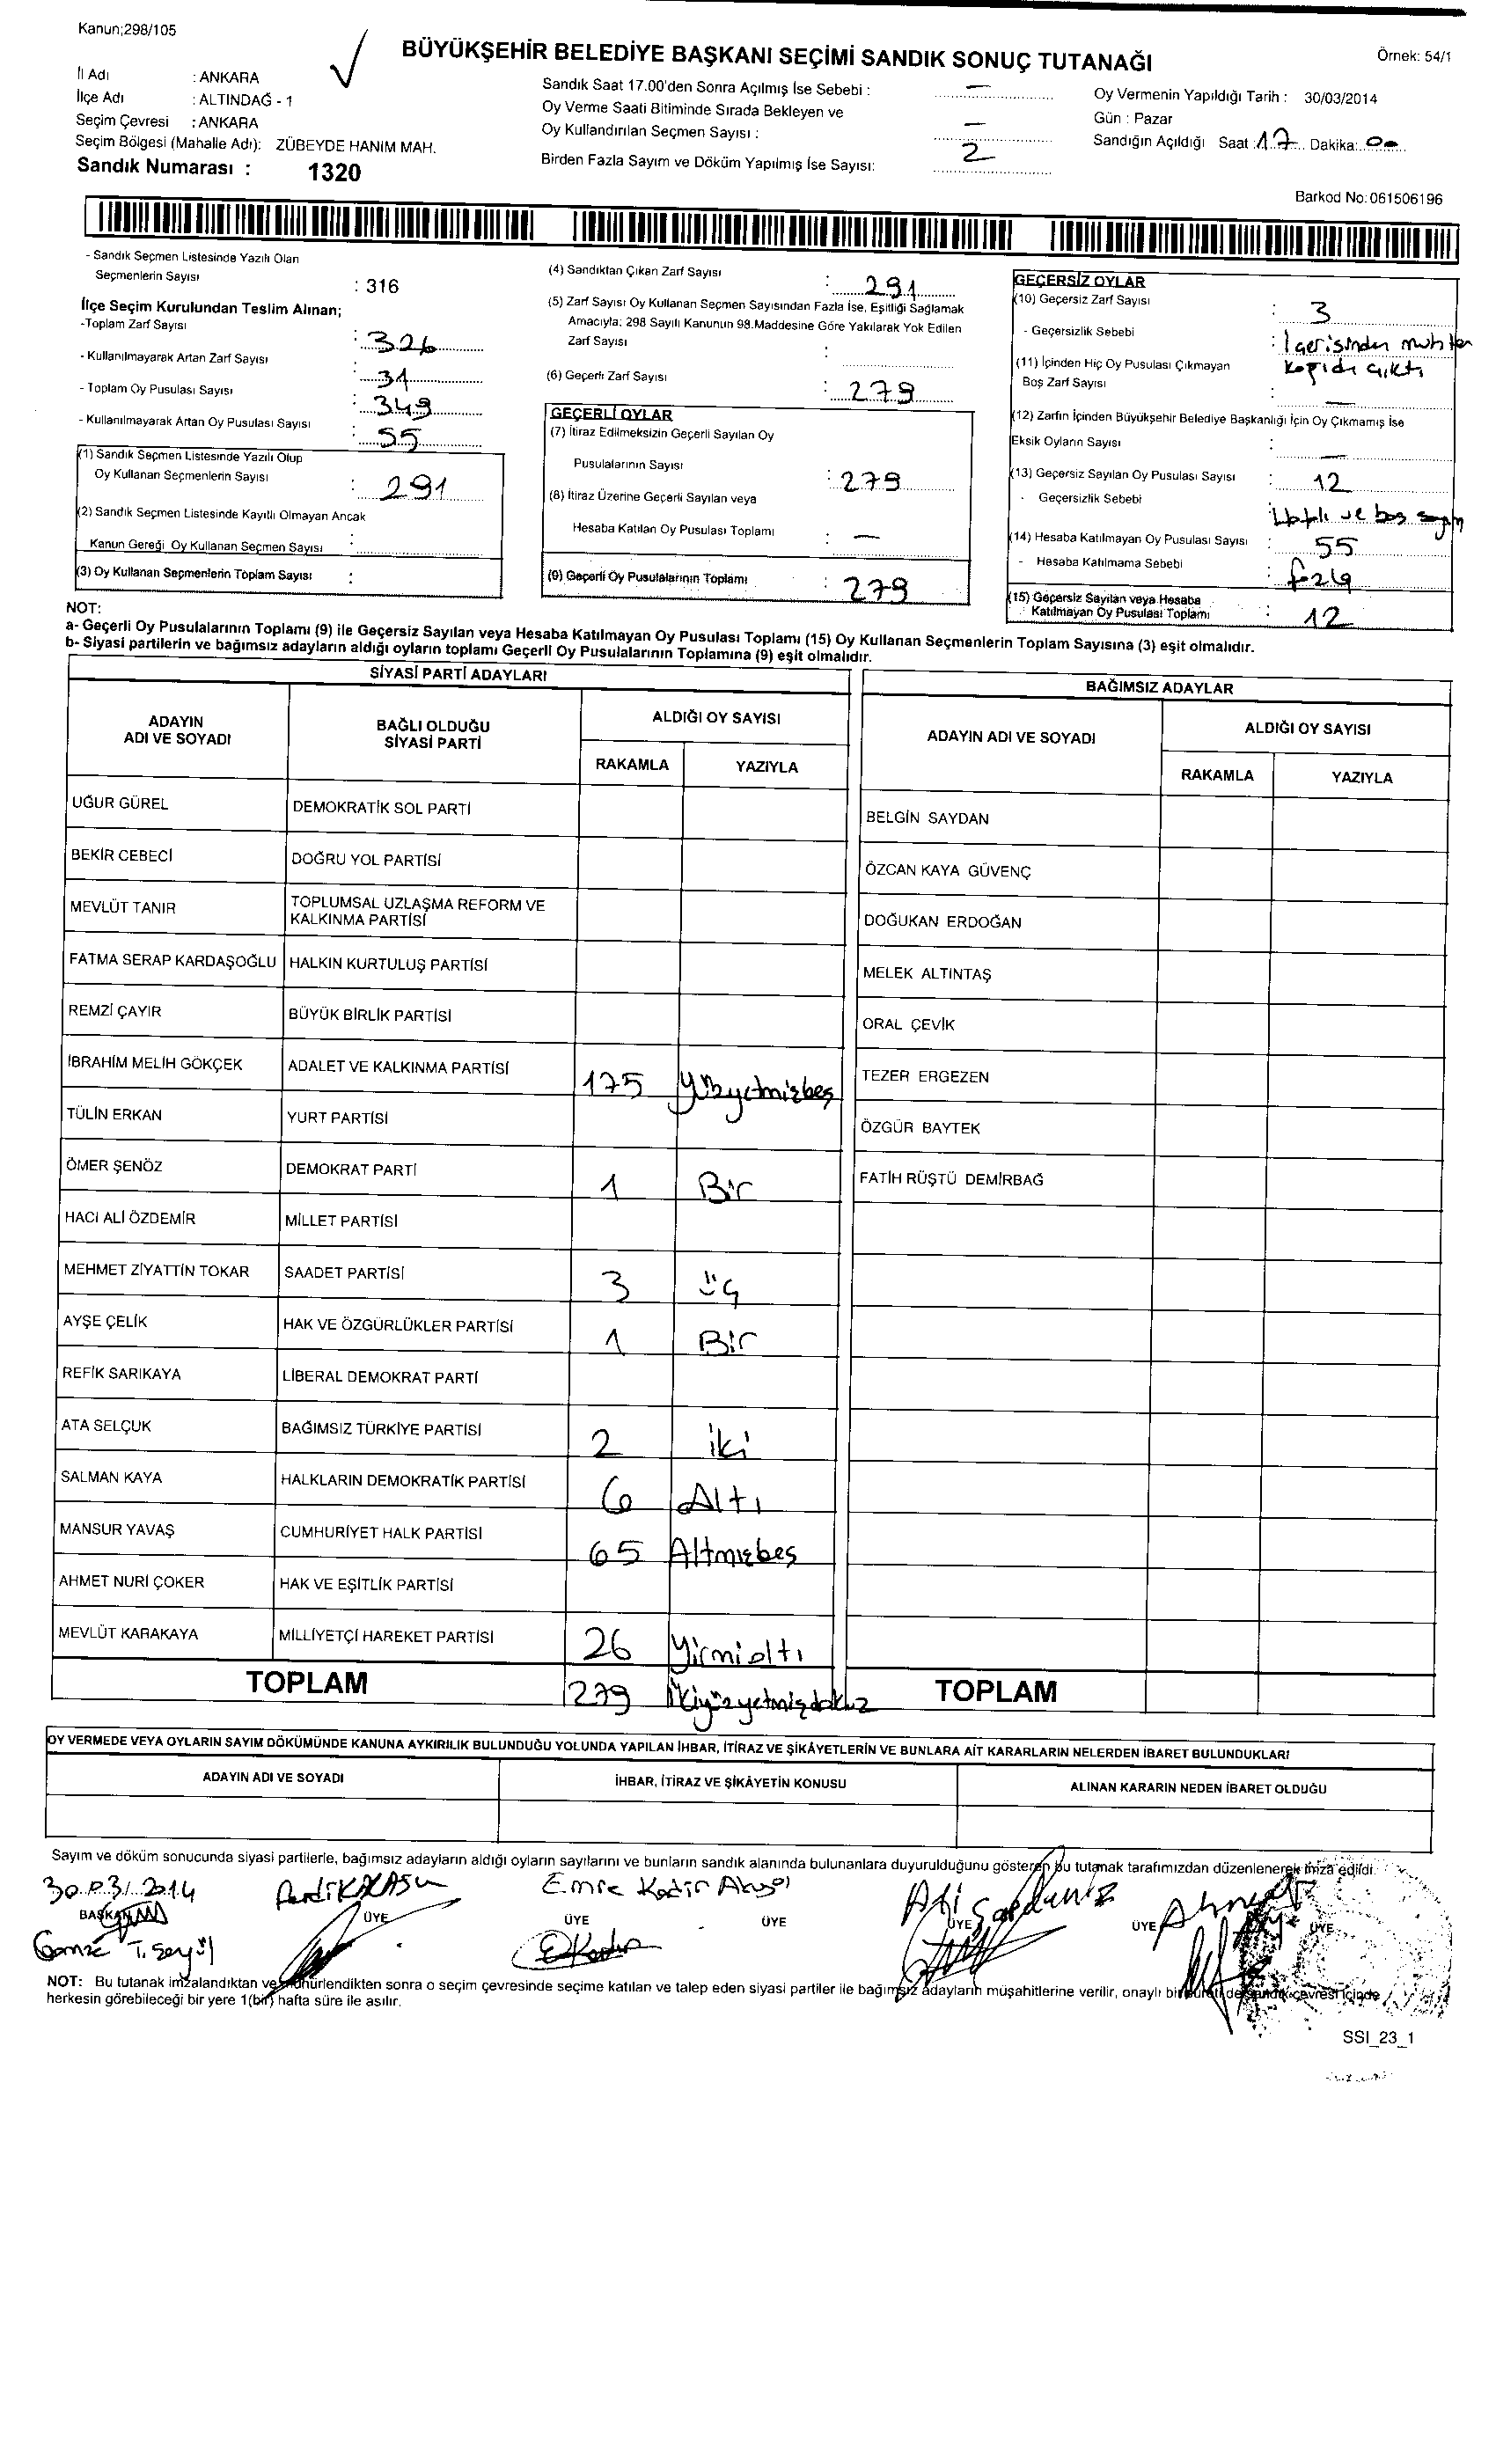 Kanun;298/105
BÜYÜKŞEHİR BELEDİYE BAŞKANI SEÇİMİ SANDIK SONUÇ TUTANAĞI
Örnek: 54/1
İl Adı : ANKARA
İlçe Adı : ALTINDAĞ - 1
Seçim Çevresi : ANKARA
Seçim Bölgesi (Mahalle Adı): ZÜBEYDE HANIM MAH.
Sandık Numarası : 1320
Sandık Saat 17.00'den Sonra Açılmış İse Sebebi : –
Oy Verme Saati Bitiminde Sırada Bekleyen ve
Oy Kullandırılan Seçmen Sayısı : –
Birden Fazla Sayım ve Döküm Yapılmış İse Sayısı: 2
Oy Vermenin Yapıldığı Tarih : 30/03/2014
Gün : Pazar
Sandığın Açıldığı Saat :17 Dakika: 00
Barkod No:061506196
- Sandık Seçmen Listesinde Yazılı Olan
Seçmenlerin Sayısı : 316
İlçe Seçim Kurulundan Teslim Alınan;
-Toplam Zarf Sayısı : 326
- Kullanılmayarak Artan Zarf Sayısı : 31
- Toplam Oy Pusulası Sayısı : 349
- Kullanılmayarak Artan Oy Pusulası Sayısı : 55
(1) Sandık Seçmen Listesinde Yazılı Olup
Oy Kullanan Seçmenlerin Sayısı : 291
(2) Sandık Seçmen Listesinde Kayıtlı Olmayan Ancak
Kanun Gereği Oy Kullanan Seçmen Sayısı :
(3) Oy Kullanan Seçmenlerin Toplam Sayısı :
(4) Sandıktan Çıkan Zarf Sayısı : 291
(5) Zarf Sayısı Oy Kullanan Seçmen Sayısından Fazla İse, Eşitliği Sağlamak
Amacıyla; 298 Sayılı Kanunun 98.Maddesine Göre Yakılarak Yok Edilen
Zarf Sayısı :
(6) Geçerli Zarf Sayısı : 279
GEÇERLİ OYLAR
(7) İtiraz Edilmeksizin Geçerli Sayılan Oy
Pusulalarının Sayısı : 279
(8) İtiraz Üzerine Geçerli Sayılan veya
Hesaba Katılan Oy Pusulası Toplamı : –
(9) Geçerli Oy Pusulalarının Toplamı : 279
GEÇERSİZ OYLAR
(10) Geçersiz Zarf Sayısı : 3
- Geçersizlik Sebebi : İçerisinden muhtar
kağıdı çıktı
(11) İçinden Hiç Oy Pusulası Çıkmayan
Boş Zarf Sayısı : –
(12) Zarfın İçinden Büyükşehir Belediye Başkanlığı İçin Oy Çıkmamış İse
Eksik Oyların Sayısı : –
(13) Geçersiz Sayılan Oy Pusulası Sayısı : 12
- Geçersizlik Sebebi : ve boş
(14) Hesaba Katılmayan Oy Pusulası Sayısı : 55
- Hesaba Katılmama Sebebi : fazla
(15) Geçersiz Sayılan veya Hesaba
Katılmayan Oy Pusulası Toplamı : 12
NOT:
a- Geçerli Oy Pusulalarının Toplamı (9) ile Geçersiz Sayılan veya Hesaba Katılmayan Oy Pusulası Toplamı (15) Oy Kullanan Seçmenlerin Toplam Sayısına (3) eşit olmalıdır.
b- Siyasi partilerin ve bağımsız adayların aldığı oyların toplamı Geçerli Oy Pusulalarının Toplamına (9) eşit olmalıdır.
SİYASİ PARTİ ADAYLARI
ADAYIN ADI VE SOYADI BAĞLI OLDUĞU SİYASİ PARTİ ALDIĞI OY SAYISI
RAKAMLA YAZIYLA
UĞUR GÜREL DEMOKRATİK SOL PARTİ
BEKİR CEBECİ DOĞRU YOL PARTİSİ
MEVLÜT TANIR TOPLUMSAL UZLAŞMA REFORM VE
KALKINMA PARTİSİ
FATMA SERAP KARDAŞOĞLU HALKIN KURTULUŞ PARTİSİ
REMZİ ÇAYIR BÜYÜK BİRLİK PARTİSİ
İBRAHİM MELİH GÖKÇEK ADALET VE KALKINMA PARTİSİ 175 Yüzyetmişbeş
TÜLİN ERKAN YURT PARTİSİ
ÖMER ŞENÖZ DEMOKRAT PARTİ 1 Bir
HACI ALİ ÖZDEMİR MİLLET PARTİSİ
MEHMET ZİYATTİN TOKAR SAADET PARTİSİ 3 üç
AYŞE ÇELİK HAK VE ÖZGÜRLÜKLER PARTİSİ 1 Bir
REFİK SARIKAYA LİBERAL DEMOKRAT PARTİ
ATA SELÇUK BAĞIMSIZ TÜRKİYE PARTİSİ 2 iki
SALMAN KAYA HALKLARIN DEMOKRATİK PARTİSİ 6 Altı
MANSUR YAVAŞ CUMHURİYET HALK PARTİSİ 65 Altmışbeş
AHMET NURİ ÇOKER HAK VE EŞİTLİK PARTİSİ
MEVLÜT KARAKAYA MİLLİYETÇİ HAREKET PARTİSİ 26 Yirmialtı
TOPLAM 279 İkiyüzyetmişdokuz
BAĞIMSIZ ADAYLAR
ADAYIN ADI VE SOYADI ALDIĞI OY SAYISI
RAKAMLA YAZIYLA
BELGİN SAYDAN
ÖZCAN KAYA GÜVENÇ
DOĞUKAN ERDOĞAN
MELEK ALTINTAŞ
ORAL ÇEVİK
TEZER ERGEZEN
ÖZGÜR BAYTEK
FATİH RÜŞTÜ DEMİRBAĞ
TOPLAM
OY VERMEDE VEYA OYLARIN SAYIM DÖKÜMÜNDE KANUNA AYKIRILIK BULUNDUĞU YOLUNDA YAPILAN İHBAR, İTİRAZ VE ŞİKÂYETLERİN VE BUNLARA AİT KARARLARIN NELERDEN İBARET BULUNDUKLARI
ADAYIN ADI VE SOYADI İHBAR, İTİRAZ VE ŞİKÂYETİN KONUSU ALINAN KARARIN NEDEN İBARET OLDUĞU
Sayım ve döküm sonucunda siyasi partilerle, bağımsız adayların aldığı oyların sayılarını ve bunların sandık alanında bulunanlara duyurulduğunu gösteren bu tutanak tarafımızdan düzenlenerek imza edildi.
30.03.2014 Emre Kadir
BAŞKAN ÜYE ÜYE ÜYE ÜYE ÜYE ÜYE
NOT: Bu tutanak imzalandıktan ve mühürlendikten sonra o seçim çevresinde seçime katılan ve talep eden siyasi partiler ile bağımsız adayların müşahitlerine verilir, onaylı bir sureti de sandık çevresi içinde
herkesin görebileceği bir yere 1(bir) hafta süre ile asılır.
SSI_23_1